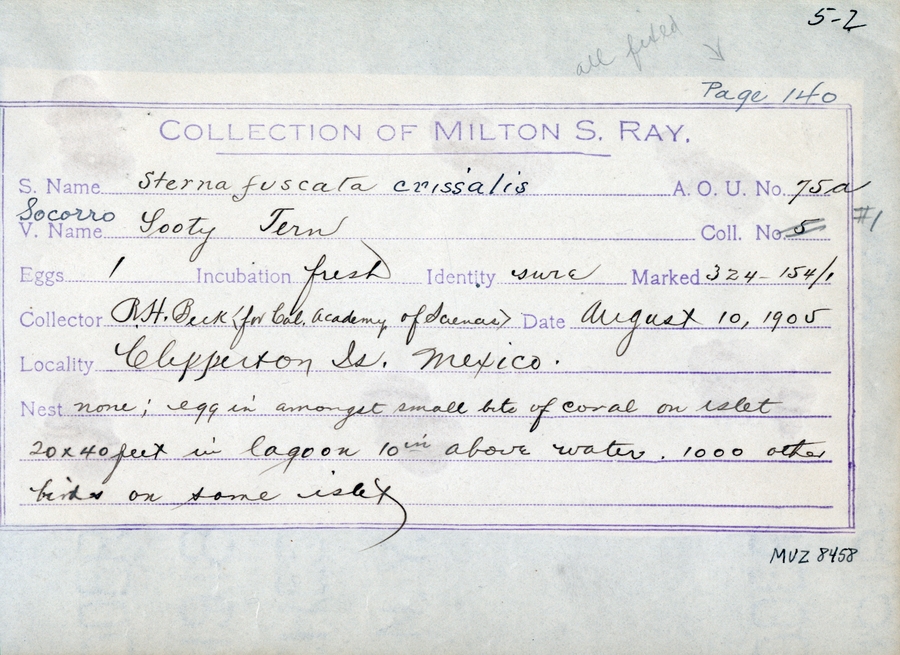 5-2
all filed
Page 140
COLLECTION OF MILTON S. RAY.
S. Name Sterna fuscata crissalis A. O. U. No. 75a
Socorro
V. Name Sooty Tern Coll. No. 5 #1
Eggs 1 Incubation fresh Identity sure Marked 324-154/1
Collector R.H. Beck (for Cal. Academy of Sciences) Date August 10, 1905
Locality Clipperton Is. Mexico.
Nest none; egg in amongst small bits of coral on islet
20x40 feet in lagoon 10 in above water. 1000 other
birds on same islet
MVZ 8458